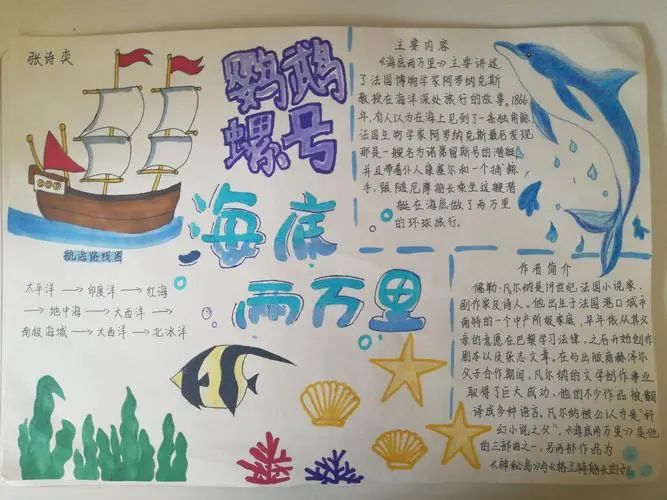 张诗奕
鹦鹉
螺号
海底
两万里
航海路线图
太平洋→印度洋→红海
→地中海→大西洋→
南极海域→大西洋→北冰洋
主要内容
《海底两万里》主要讲述
了法国博物学家阿罗纳克斯
教授在海洋深处旅行的故事。1866
年,有人以为在海上见到了一条独角鲸,
法国生物学家阿罗纳克斯最后发现
那是一艘名为诺第留斯号的潜艇,
并且带着仆人康塞尔和一个捕鲸
手,跟随尼摩船长乘坐这艘潜
艇在海底做了两万里
的环球旅行。
作者简介
儒勒·凡尔纳是19世纪法国小说家、
剧作家及诗人。他出生于法国港口城市
南特的一个中产阶级家庭,早年依从其父
亲的意愿在巴黎学习法律,之后开始创作
剧本以及杂志文章。在与出版商赫泽尔
父子合作期间,凡尔纳的文学创作事业
取得了巨大成功,他的不少作品被翻
译成多种语言。凡尔纳被公认为是“科
幻小说之父”,《海底两万里》是他
的三部曲之一,另两部作品为
《神秘岛》与《格兰特船长的